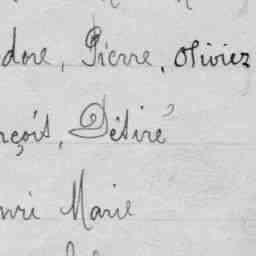 dore, Pierre, Olivier
rçois, Désiré
nri Marie